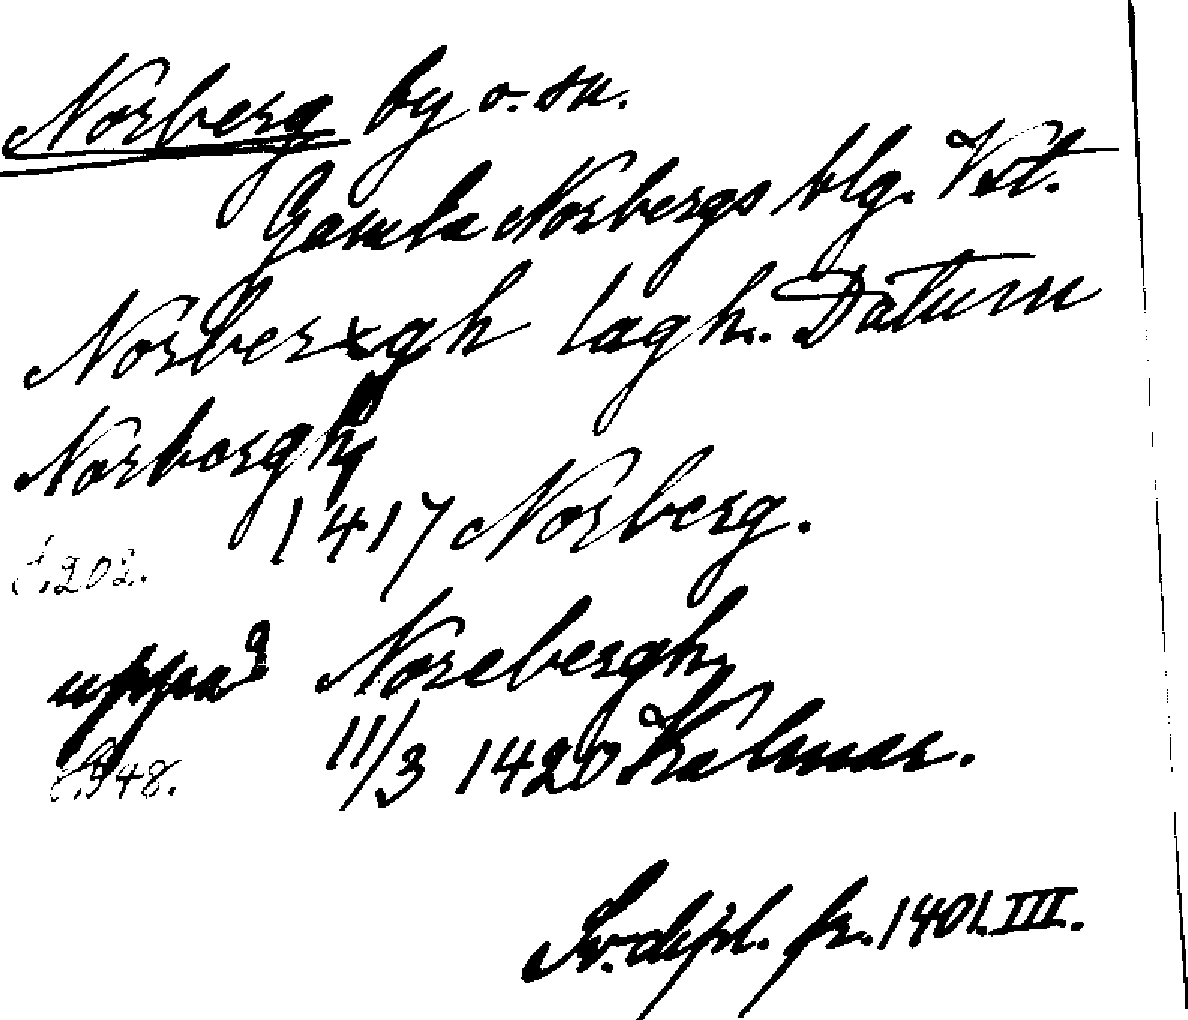 Norberg by o. sn.
Gamla Norbergs blg. Vstl.
Norberxgh lagh. Datum
Norborgh
1417 Norberg.
S. 202.
uppa Norebergh
11/3 1420 Kalmar.
S. 548.
Sv. dipl. fr. 1401. III.